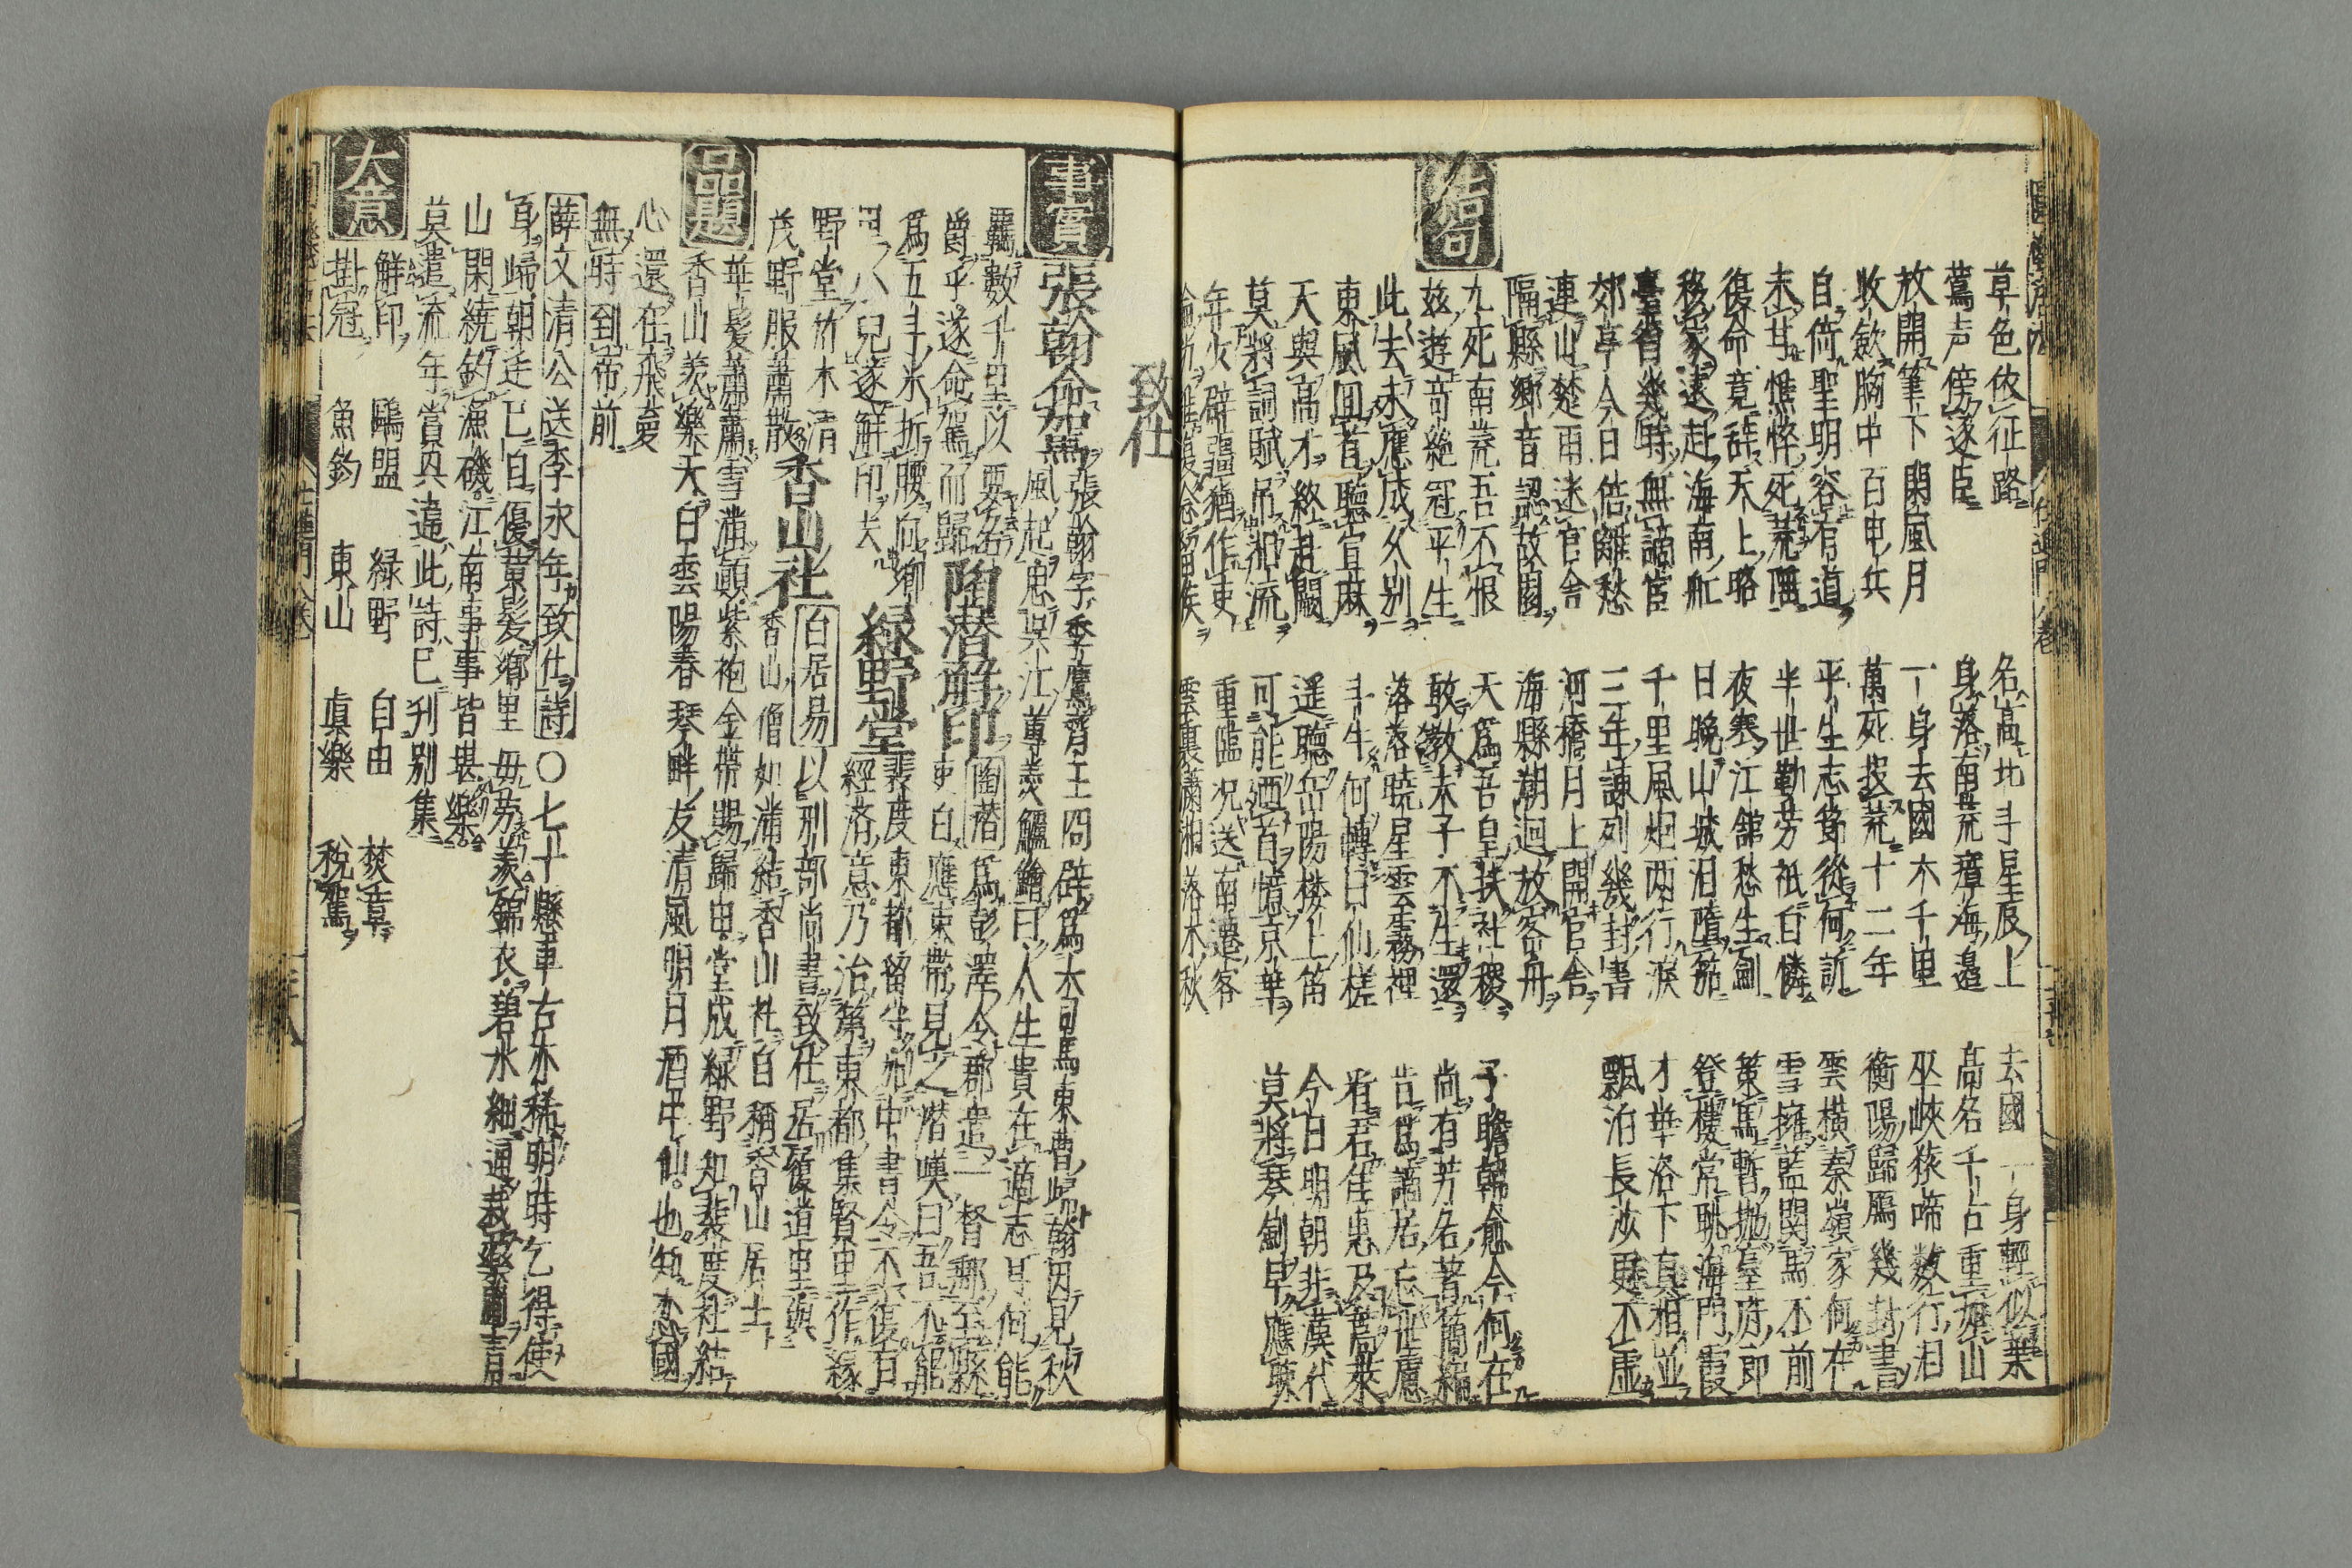 草色依征路
名高北斗星辰上
去國一身輕似葉
鴬声傍逐臣
身落南荒瘴海邉
高名千古重如山
放開筆下閑風月
一身去國六千里
巫峽猿啼数行泪
收歛胸中百甲兵
萬死投荒十二年
衡陽歸鴈幾封書
自倚聖明容有道
平生志節從何訴
雲横秦嶺家何在
未甘憔悴死荒陲
半世勤勞祇自憐
雪擁藍関馬不前
復命竟辞天上輅
夜寒江舘愁生劔
策馬暫抛臺府郎
移家遠赴海南舡
日晩山城泪墮笳
登樓常眺海門霞
臺省幾時無謫宦
千里風烟两行淚
才華洛下真相並
郊亭今日倍離愁
三年諫列幾封書
飄泊長沙更不虚
連山楚雨迷官舎
河橋月上開官舎
隔縣郷音認故園
海縣潮迴放客舟
結句
九死南荒吾不恨
天爲吾皇扶社稷
子瞻韓愈今何在
兹遊奇絶冠平生
敢教朱子不生還
尚有芳名著簡編
此去未應成久别
落落暁星雲霧裡
告爲謫居忘世慮
東風回首聽宣麻
斗牛何轉日仙槎
看君佳惠及蒿萊
天與高才終赴闕
遥聴岳陽楼上笛
今日明朝非漢代
莫將詞賦吊湘流
可能廻首憶京華
莫將琴劔早應聴
年少辟疆猶作吏
重臨况送南遷客
雲裏瀟湘落木秋
致仕
事實
張翰命駕 張翰字季鷹齊王冏辟爲大司馬東曹掾翰因見秋
風起思呉江蓴羹鱸鱠曰人生貴在適志耳何能
羈數千里以要名
爵乎遂命駕而歸 陶潜解印 陶潜爲彭澤令郡遣督郵至縣
吏白應束帶見之潜嘆曰吾不能
爲五斗米折腰向郷
里小兒遂解印去 緑野堂 裴度東都留守加中書令不復有
經済意乃治第東都集賢里作緑
野堂竹木清
茂野服蕭散 香山社 白居易以刑部尚書致仕居復道里與
香山僧如滿結香山社自稱香山居士
品題
華髪蕭蕭雪滿顛紫袍金帶賜歸田堂成緑野知裴度社結
香山羨樂天白雲陽春琴畔友清風明月酒中仙也知恋國
心還在飛夢
無時到帝前
薛文清公送李永年致仕詩○七十懸車古亦稀明時乞得使
身歸朝廷已自優黄髪郷里毋勞羨錦衣碧水細通栽藥圃青
山閑繞釣漁磯江南事事皆堪樂
莫遣流年賞興違此詩已刋别集
大意
解印 鷗盟 緑野 自由 焚章
掛冠 魚釣 東山 真樂 税駕